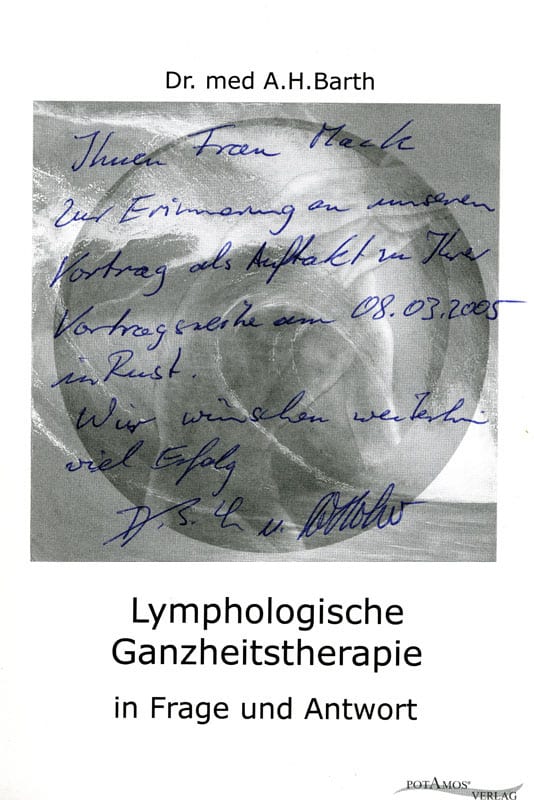 Dr. med A.H.Barth
Ihnen Frau Mack
zur Erinnerung an unseren
Vortrag als Auftakt zu Ihrer
Vortragsreihe am 08.03.2005
in Rust.
Wir wünschen weiterhin
viel Erfolg
u.
Lymphologische
Ganzheitstherapie
in Frage und Antwort
POTAMOS®
VERLAG